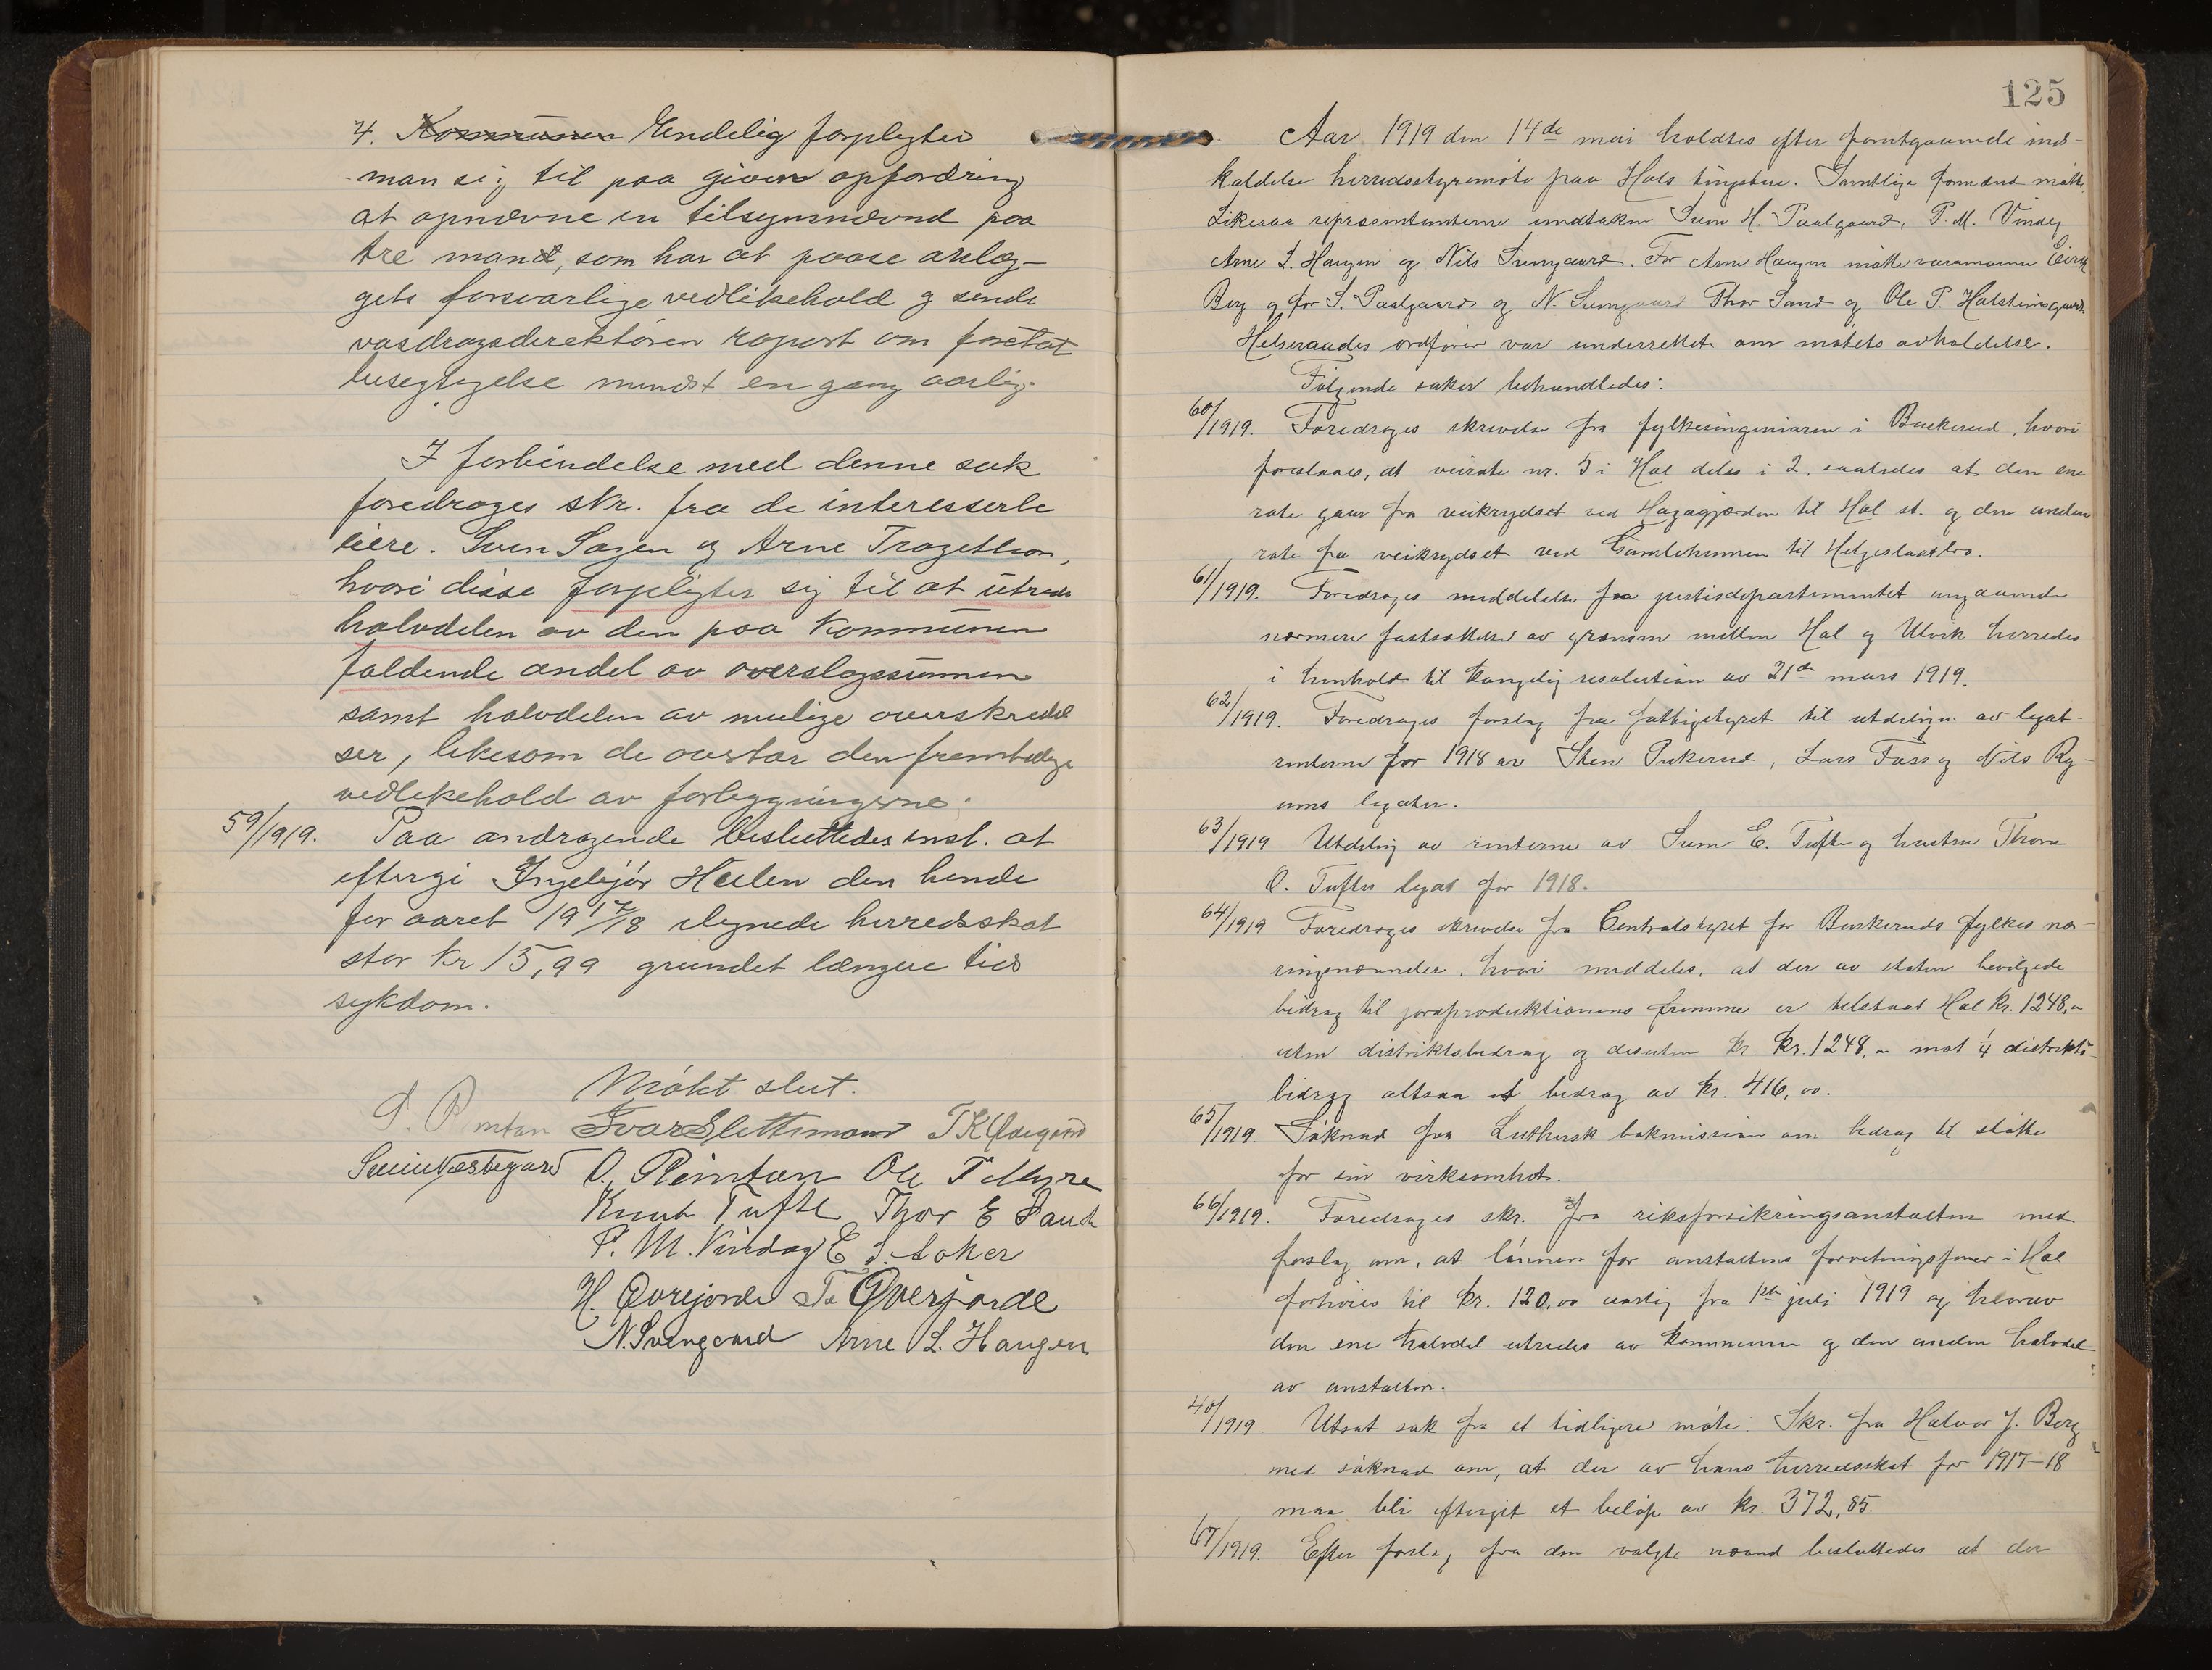 4. Kommunen Endelig forpligter
man sig til paa given opfordring
at opnævne en tilsynsnævnd paa
tre mand, som har at paase anlæg-
gets forsvarlige vedlikehold og sende
vasdragsdirektören raport om foretat
besigtigelse mindst en gang aarlig.
I forbindelse med denne sak
foredrages skr. fra de interesserte
eiere. Sven Sagen og Arne Trogethon,
hvori disse forpligter sig til at utrede
halvdelen av den paa Kommunen
faldende andel av overslagssummen
samt halvdelen av mulige overskridel
ser, likesom de overtar den fremtidige
vedlikehold av forbygningerne.
59/1919. Paa andragende besluttedes enst. at
eftergi Ingebjör Heslen den hende
for aaret 1917/18 ilignede herredsskat
stor Kr 15,99 grundet længere tids
sykdom.
Mötet slut.
Ivar Slettemoen T K Ödegaard
Svein Vestegard O. Reinton Ole T Myre
Knut Tufte Thor E Sand
P. M. Vindeg E S. Loker
H. Övrejorde T. Överjorde
N. Svengaard Arne L. Haugen
125
Aar 1919 den 14de mai holdtes efter forutgaaende ind-
kaldelse herredsstyremöte paa Hols tingstue. Samtlige formænd mötte.
Likesaa repræsentanterne undtaken Svein H. Paalgaard, P. M. Vindeg
Arne L. Haugen og Nils Svengaard. For Arne Haugen mötte varamannen Eirik
Berg og for S. Paalgaard og N. Svengaard Thor Sand og Ole P. Holsteinsgaard.
Helseraadets ordförer var underrettet om mötets avholdelse.
Fölgende saker behandledes:
60/1919. Foredrages skrivelse fra fylkesingeniören i Buskerud, hvori
foreslaaes, at veirote nr. 5 i Hol deles i 2. saaledes at den ene
rote gaar fra veikrydset ved Hagagjærden til Hol st. og den anden
rote fra veikrydset ved Gamlehumen til Helgeslaattbro.
61/1919. Foredrages meddelelse fra justisdepartementet angaaende
nærmere fastsættelse av grænsen mellem Hol og Ulvik herreder
i henhold til kongelig resolution av 21de mars 1919.
62/1919. Foredrages forslag fra fattigstyret til utdeling av legat-
renterne for 1918 av Sten Pukerud, Lars Foss og Nils Ry-
ens legater.
63/1919 Utdeling av renterne av Svein E. Tufte og hustru Thone
O. Tuftes legat for 1918.
64/1919 Foredrages skrivelse fra Centralstyret for Buskeruds fylkes næ-
ringsnævnder, hvori meddeles, at der av staten bevilgede
bidrag til jordproduktionens fremme er tilstaat Hol kr. 1248,00
uten distriktsbidrag og desuten kr. kr. 1248,00 mot 1/4 distrikts-
bidrag altsaa et bidrag av kr. 416,00.
65/1919. Söknad fra Luthersk bokmission om bidrag til stötte
for sin virksomhet.
66/1919. Foredrages skr. fra riksforsikringsanstalten med
forslag om, at lönnen for anstaltens forretningsförer i Hol
forhöies til kr. 120,00 aarlig fra 1ste juli 1919 og hvorav
den ene halvdel utredes av kommunen og den anden halvdel
av anstalten.
40/1919. Utsat sak fra et tidligere möte: Skr. fra Halvor J. Berg
med söknad om, at der av hans herredsskat for 1917-18
maa bli eftergit et belöp av kr. 372,85.
67/1919. Efter forslag fra den valgte nævnd besluttedes at der